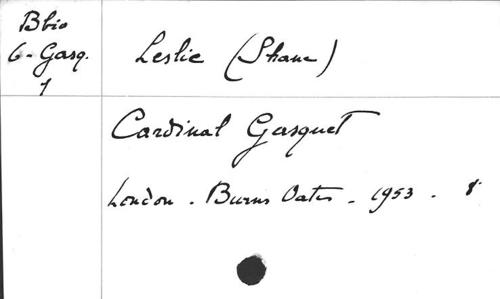 Bbio
6 - Gasq.
1
Leslie (Shane)
Cardinal Gasquet
London - Burns Oates - 1953 - 8°